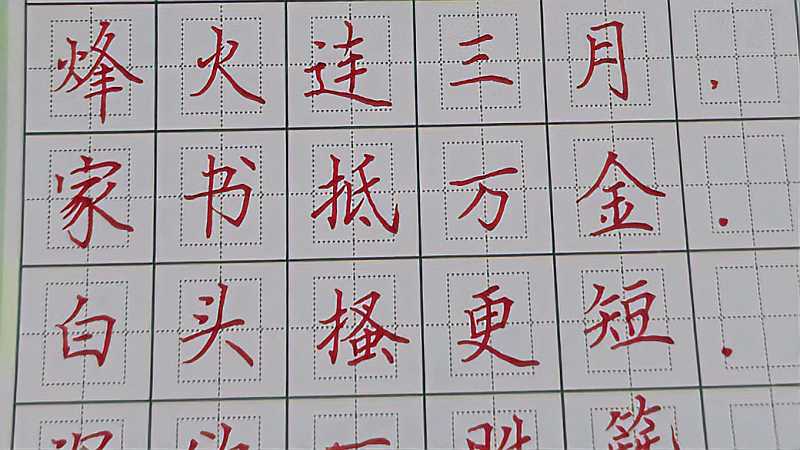 烽火连三月,
家书抵万金.
白头搔更短.